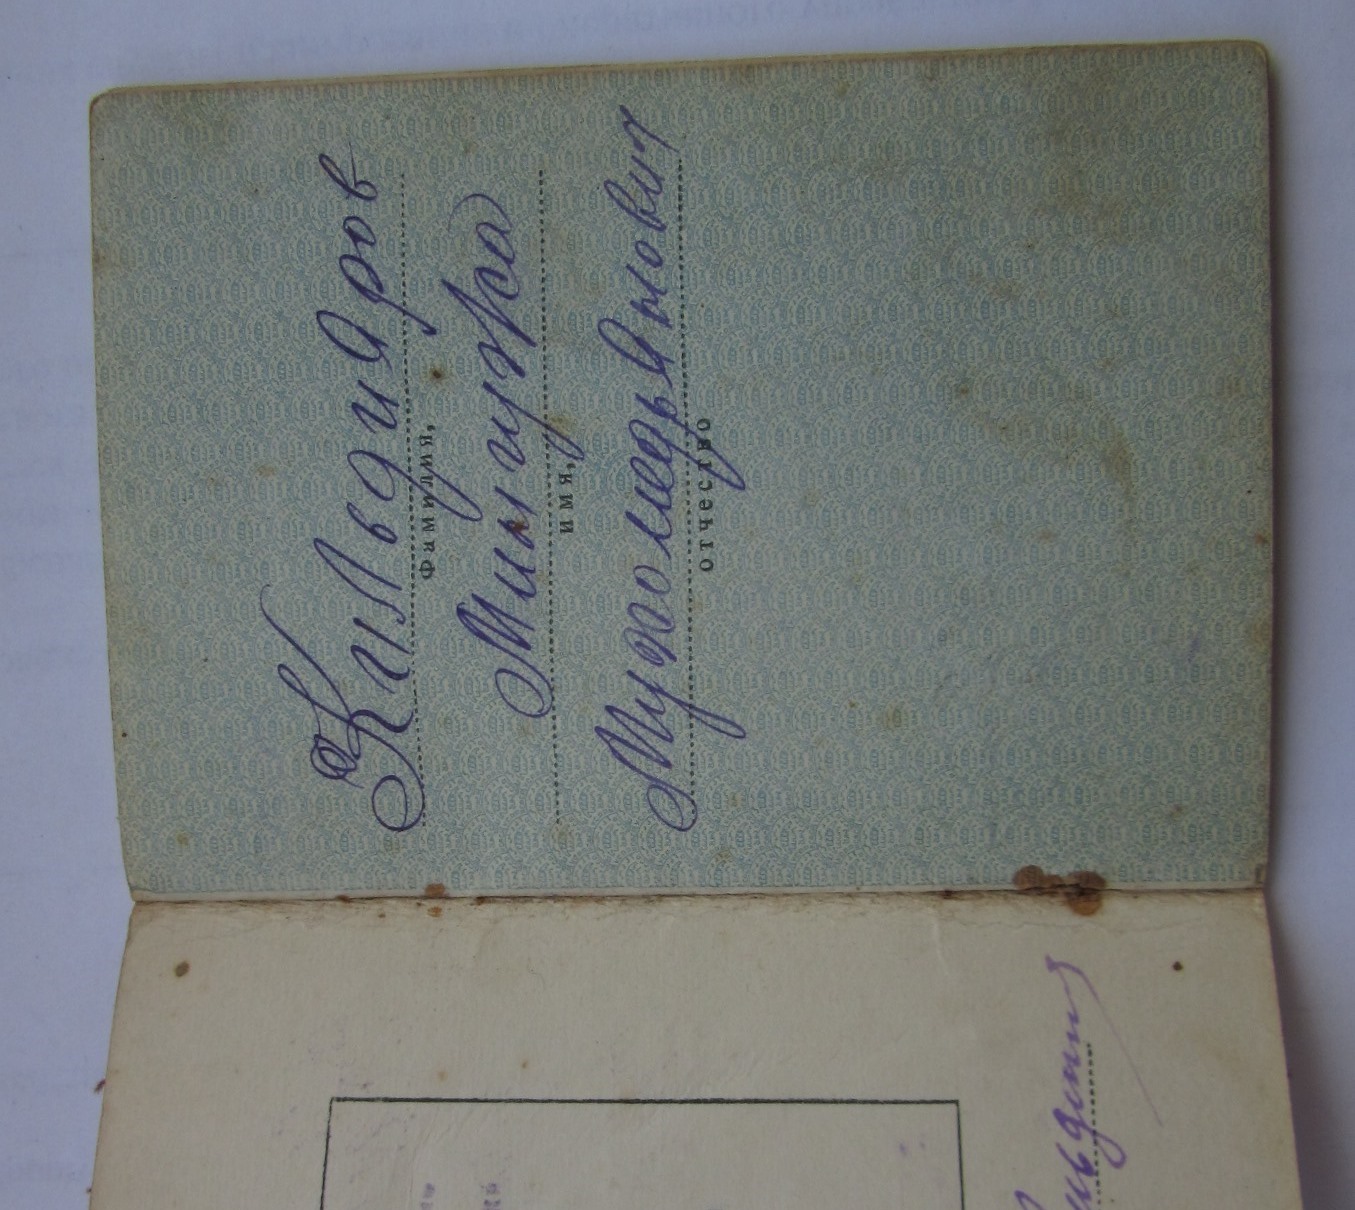 Кильдияров
фамилия,
Минигужа
имя,
Мухомедьянович
отчество